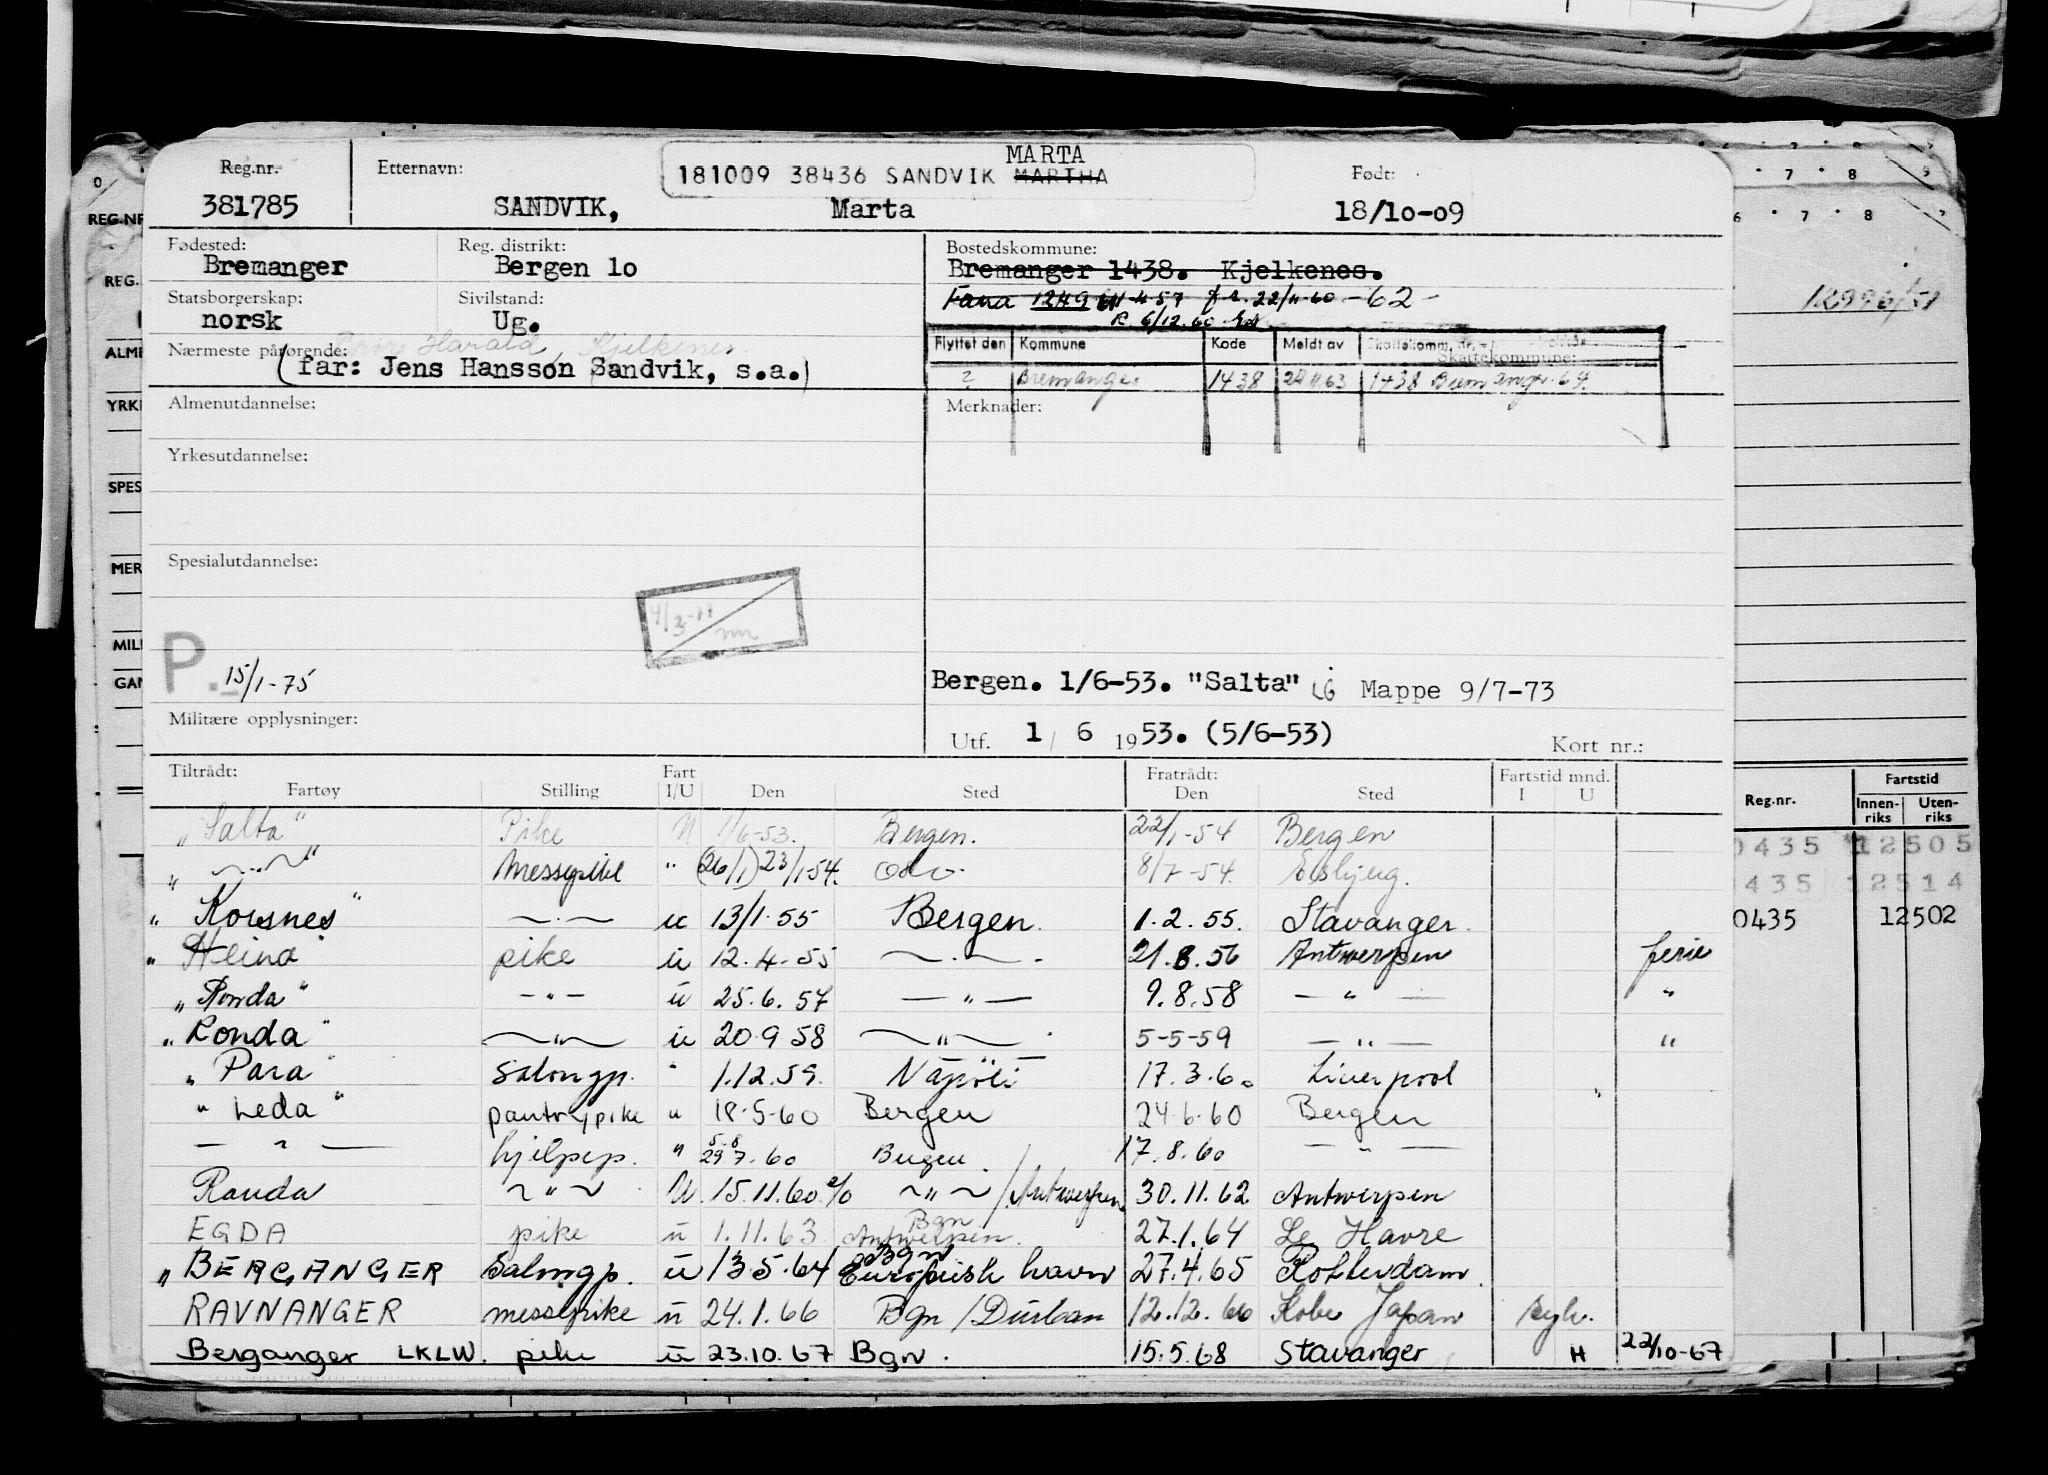 Reg.nr. Etternavn: MARTA Født:
181009 38436 SANDVIK MARTHA
381785 SANDVIK, Marta 18/10-09
Fødested: Reg. distrikt: Bostedskommune:
Bremanger Bergen 10 Bremanger 1438. Kjelkenes.
Statsborgerskap: Sivilstand: Fana 1249 22/11-60 -62-
norsk Ug. 6/12.60
Harald Kjelkenes
Nærmeste pårørende: Flyttet den Kommune Kode Meldt av Skattekomm. nr.
Skattekommune:
(far: Jens Hansson Sandvik, s.a.) ? Bremanger 1438 63 1438
Almenutdannelse: Merknader:
Yrkesutdannelse:
Spesialutdannelse:
P. 15/1-75
Bergen. 1/6-53. "Salta" LG Mappe 9/7-73
Militære opplysninger:
Utf. 1/ 6 1953. (5/6-53) Kort nr.:
Tiltrådt: Fart Fratrådt: Fartstid mnd.
Fartøy Stilling I/U Den Sted Den Sted I U
"Salta" Pike U 1/6-53. Bergen. 22/1-54 Bergen
" —"—" Messepike " (26/1) 23/1-54. 8/7-54. Esbjerg.
"Korsnes" —"— u 13/1-55 Bergen. 1.2.55. Stavanger.
"Heina pike u 12.4.55 —"— 21.8.56 Antwerpen ferie
"Ronda" —"— u 25.6.57 —"— 9.8.58 —"— "
"Ronda" —"— u 20.9 58 —"— 5-5-59 —"— "
"Para" Salongp. " 1.12.59. Napoli 17.3.60 Liverpool
"Leda" pantrypike " 18-5-60 Bergen 24.6.60 Bergen
—"— hjelpep. " 5.8 29 7.60 Bergen. 17.8.60 —"—
Randa —"— U 15.11.60 —"— /Antwerpen 30.11.62 Antwerpen
EGDA pike u 1.11.63 Bgn Antwerpen. 27.1.64 Le Havre
"BERGANGER Salongp. u 13.5.64 Bgn Europeisk havn 27.4.65 Rotterdam
RAVNANGER messepike u 24.1.66 Bgn/Durban 12.12.66 Kobe Japan
Berganger LKLW. pike u 23.10.67 Bgn. 15.5.68 Stavanger H 22/10-67
REG.NR
REG.
ALME
YRKE
SPES
MER
MILI
GAN
12996/51
7 8
6 7 8
Fartstid
Reg.nr. Innen-riks Uten-riks
0435 12505
435 12514
0435 12502